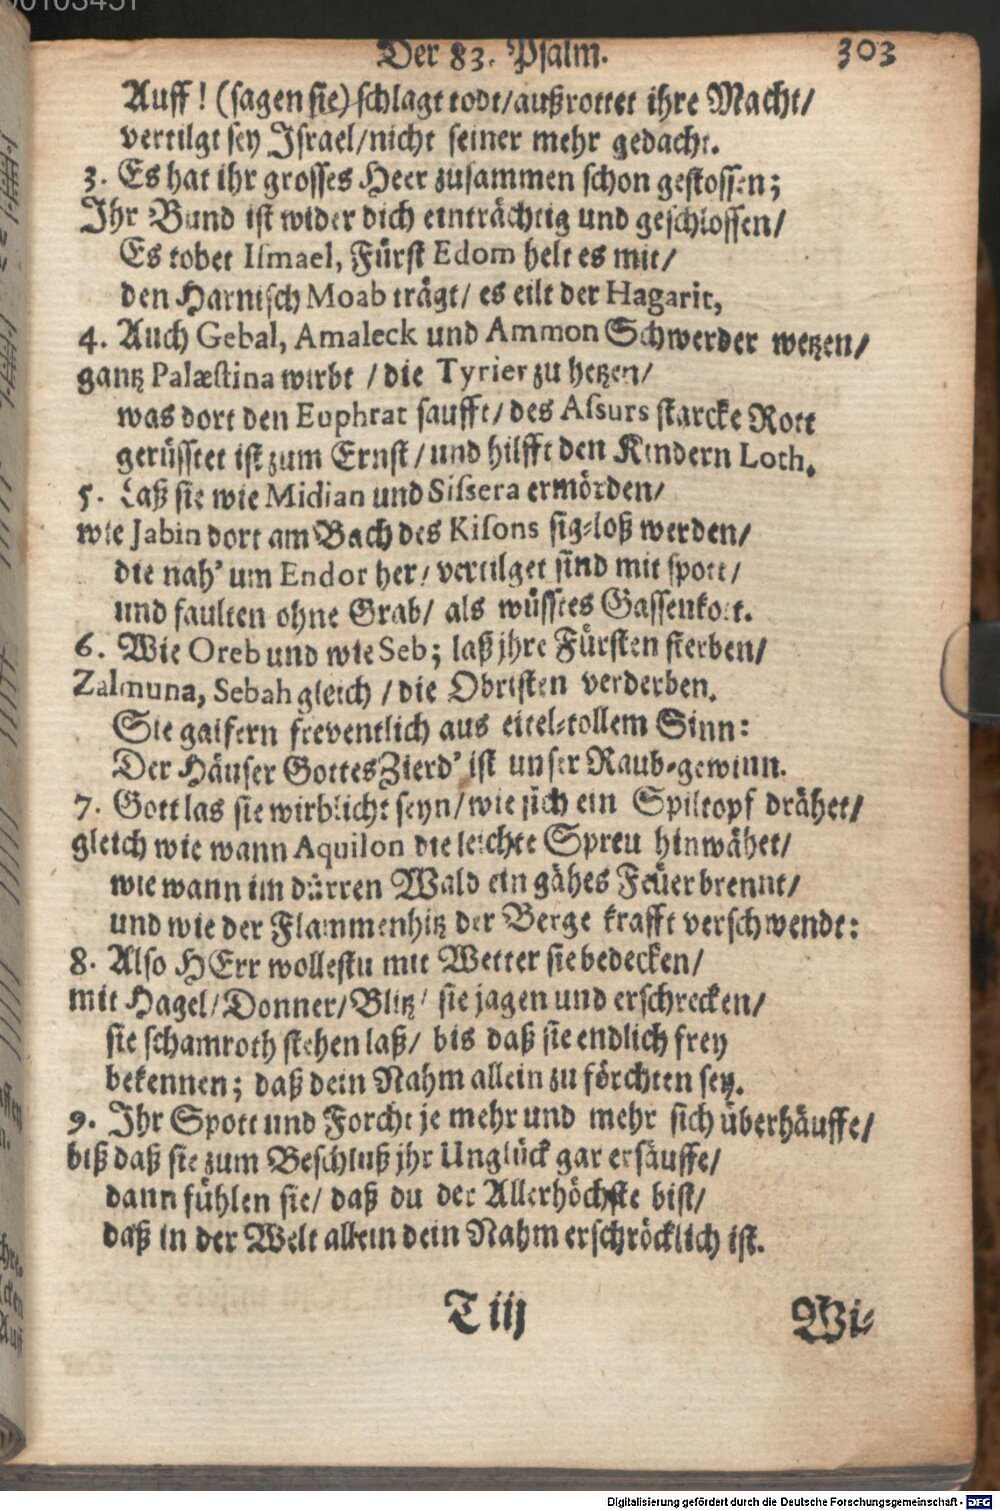 Der 83. Psalm. 303
Auff! (sagen sie) schlagt todt/außrottet ihre Macht/
vertilgt sey Israel/nicht seiner mehr gedacht.
3. Es hat ihr grosses Heer zusammen schon gestossen;
Ihr Bund ist wider dich einträchtig und geschlossen/
Es tobet Ismael, Fürst Edom helt es mit/
den Harnisch Moab trägt/ es eilt der Hagarit,
4. Auch Gebal, Amaleck und Ammon Schwerder wetzen/
gantz Palæstina wirbt /die Tyrier zu hetzen/
was dort den Euphrat saufft/des Assurs starcke Rott
gerüsstet ist zum Ernst/und hilfft den Kindern Loth.
5. Laß sie wie Midian und Sissera ermörden/
wie Jabin dort am Bach des Kisons sig-loß werden/
die nah' um Endor her/ vertilget sind mit spott/
und faulten ohne Grab/ als wüsstes Gassenkot.
6. Wie Oreb und wie Seb; laß jhre Fürsten sterben/
Zalmuna, Sebah gleich /die Obristen verderben.
Sie gaifern freventlich aus eitel-tollem Sinn:
Der Häuser Gottes Zierd' ist unser Raub-gewinn.
7. Gott las sie wirblicht seyn/wie sich ein Spiltopf drähet/
gleich wie wann Aquilon die leichte Spreu hinwähet/
wie wann im dürren Wald ein gähes Feüer brennt/
und wie der Flammenhitz der Berge krafft verschwendt:
8. Also HErr wollestu mit Wetter sie bedecken/
mit Hagel/Donner/Blitz/ sie jagen und erschrecken/
sie schamroth stehen laß/ bis daß sie endlich frey
bekennen; daß dein Nahm allein zu förchten sey.
9. Ihr Spott und Forcht je mehr und mehr sich überhäuffe/
biß daß sie zum Beschluß jhr Unglück gar ersäuffe/
dann fühlen sie/ daß du der Allerhöchste bist/
daß in der Welt allein dein Nahm erschröcklich ist.
T iij Wi-
Digitalisierung gefördert durch die Deutsche Forschungsgemeinschaft - DFG